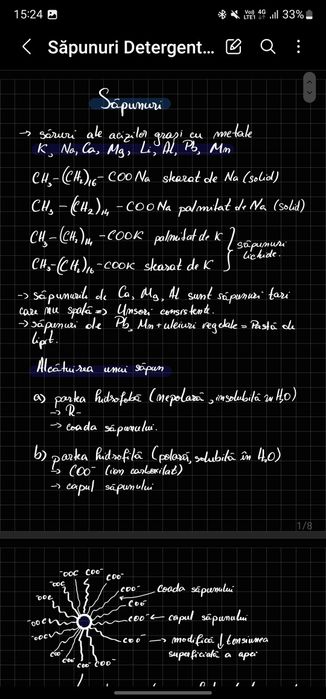 15:24
33%
Săpunuri Detergent...
Săpunuri
→ săruri ale acizilor grași cu metale
K, Na, Ca, Mg, Li, Al, Pb, Mn
CH₃-(CH₂)₁₆-COONa stearat de Na (solid)
CH₃-(CH₂)₁₄-COONa palmitat de Na (solid)
CH₃-(CH₂)₁₄-COOK palmitat de K
CH₃-(CH₂)₁₆-COOK stearat de K
săpunuri
lichide.
→ săpunurile de Ca, Mg, Al sunt săpunuri tari
care nu spală => Unsori consistente.
→ săpunuri de Pb, Mn + uleiuri vegetale = Pastă de
lipit.
Alcătuirea unui săpun
a) partea hidrofobă (nepolară, insolubilă în H₂O)
→ R-
→ coada săpunului.
b) partea hidrofilă (polară, solubilă în H₂O)
→ COO⁻ (ion carboxilat)
→ capul săpunului
1/8
⁻OOC COO⁻ COO⁻
⁻OOC COO⁻ coada săpunului
⁻OOC COO⁻
⁻OOC COO⁻ ← capul săpunului
⁻OOC COO⁻ → modifică ↓ tensiunea
superficială a apei
COO⁻ COO⁻